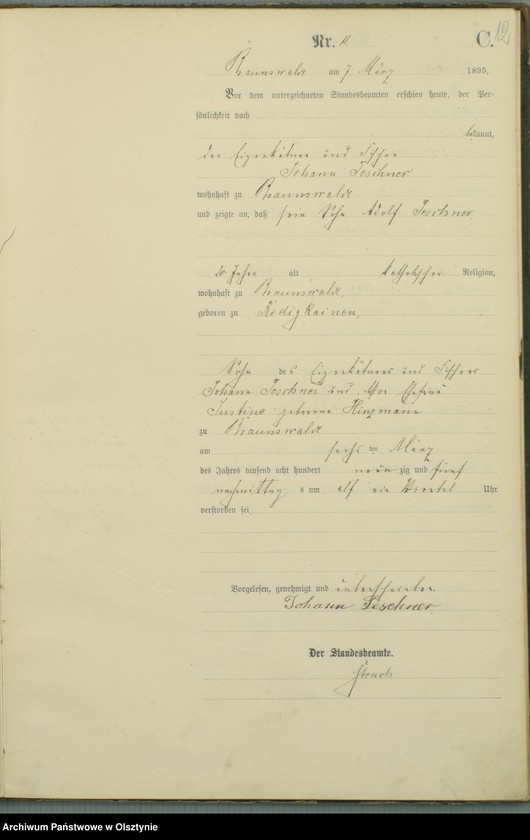 Nr. 11 C. 12
Braunswalde am 7 März 1895.
Vor dem unterzeichneten Standesbeamten erschien heute, der Per-
sönlichkeit nach
bekannt,
der Eigenkätner und
Johann Teschner
wohnhaft zu Braunswalde
und zeigte an, daß sein Sohn Adolf Teschner
Jahre alt katholischer Religion,
wohnhaft zu Braunswalde,
geboren zu Redigkainen,
Sohn des Eigenkätners und
Johann Teschner und Ehefrau
Justine geborene Hinzmann
zu Braunswalde
am sechs ten März
des Jahres tausend acht hundert neun zig und fünf
nachmittag s um elf ein Viertel Uhr
verstorben sei.
Vorgelesen, genehmigt und unterschrieben
Johann Teschner
Der Standesbeamte.
Archiwum Państwowe w Olsztynie